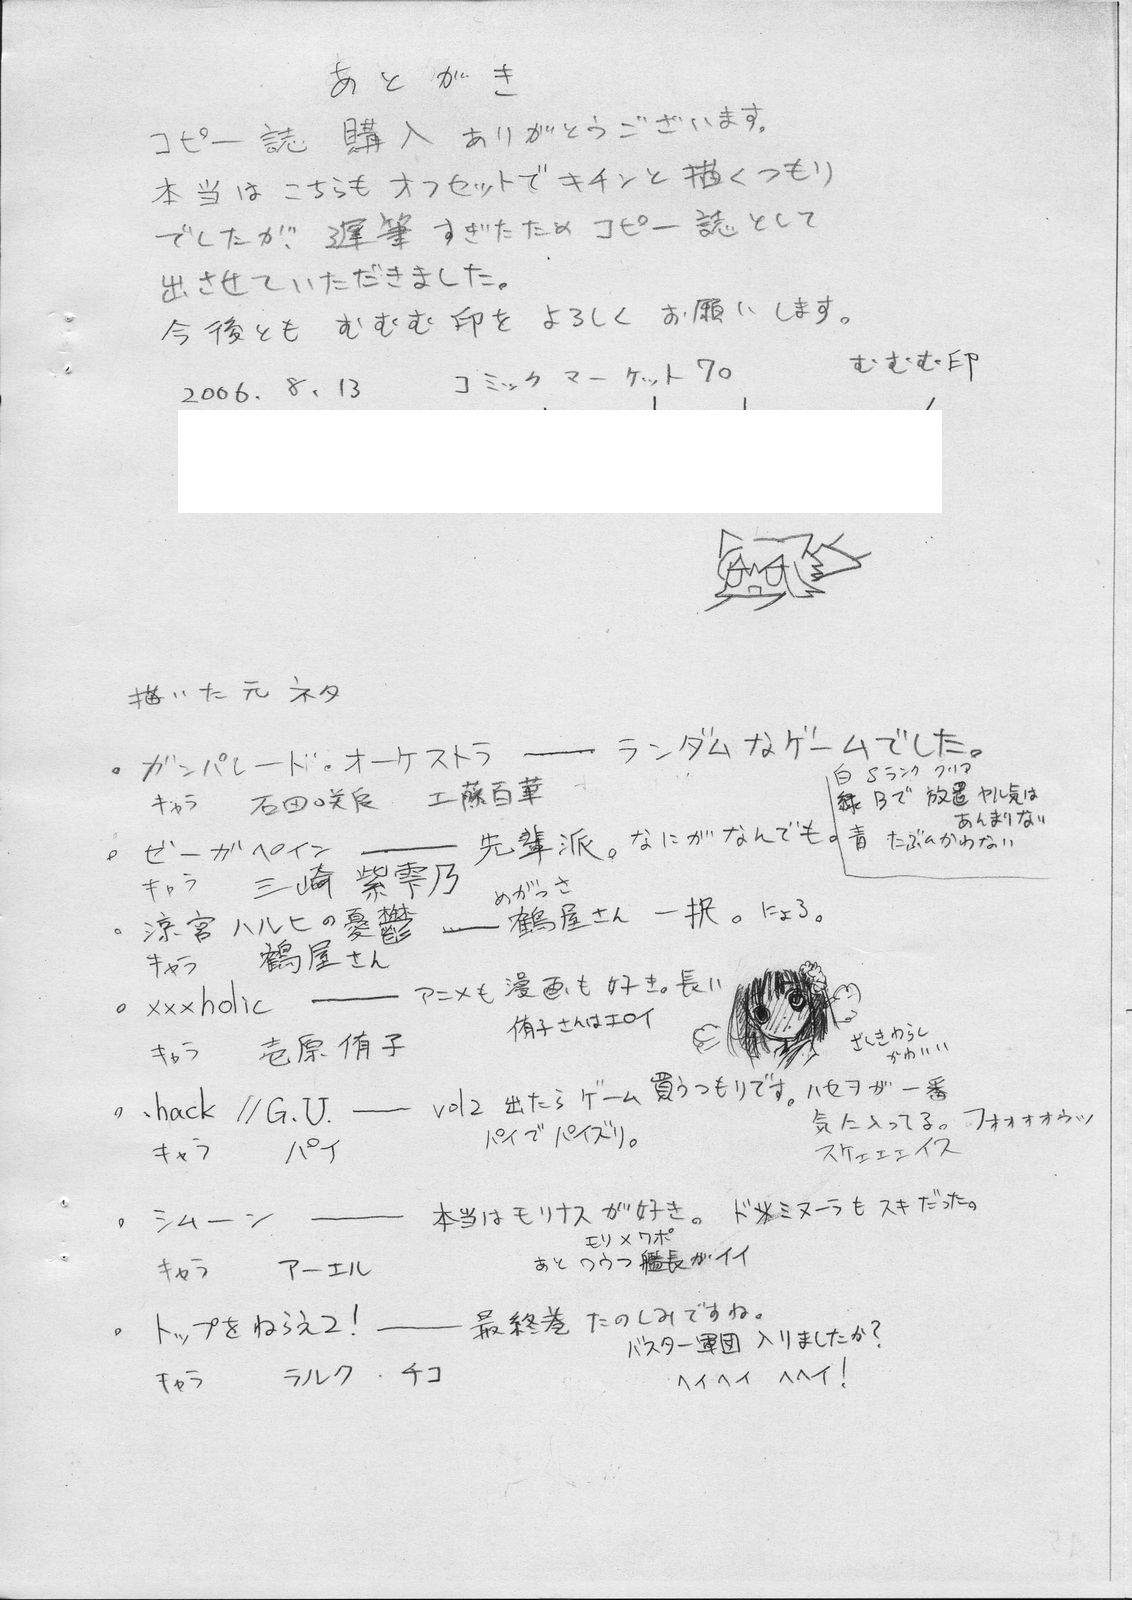 あとがき
コピー誌 購入 ありがとうございます。
本当は こちらも オフセットで キチンと 描くつもり
でしたが、遅筆 すぎたため コピー誌として
出させていただきました。
今後とも むむむ印を よろしく お願いします。
むむむ印
2006.8.13 コミックマーケット70
描いた元ネタ
・ガンパレード・オーケストラ ―― ランダムなゲームでした。
白 Sランク クリア
緑 Bで 放置 ヤル気は
あんまりない
青 たぶんかわない
キャラ 石田咲良 工藤百華
・ゼーガペイン ―― 先輩派。なにがなんでも。
キャラ 三崎 紫雫乃
めがっさ
・涼宮ハルヒの憂鬱 ―― 鶴屋さん 一択。にょろ。
キャラ 鶴屋さん
・xxxholic ―― アニメも 漫画も 好き。長い
侑子さんはエロイ
ざしきわらし
かわいい
キャラ 壱原 侑子
・.hack //G.U. ―― vol2 出たら ゲーム 買うつもりです。ハセヲが 一番
気に入ってる。フォォォォウッ
スケェェェイス
パイで パイズリ。
キャラ パイ
・シムーン ―― 本当は モリナス が 好き。ドミヌーラも スキだった。
モリ×ワポ
あと ワウフ 艦長がイイ
キャラ アーエル
・トップをねらえ2! ―― 最終巻 たのしみですね。
バスター軍団 入りましたか?
ヘイヘイ ヘヘイ!
キャラ ラルク・チコ